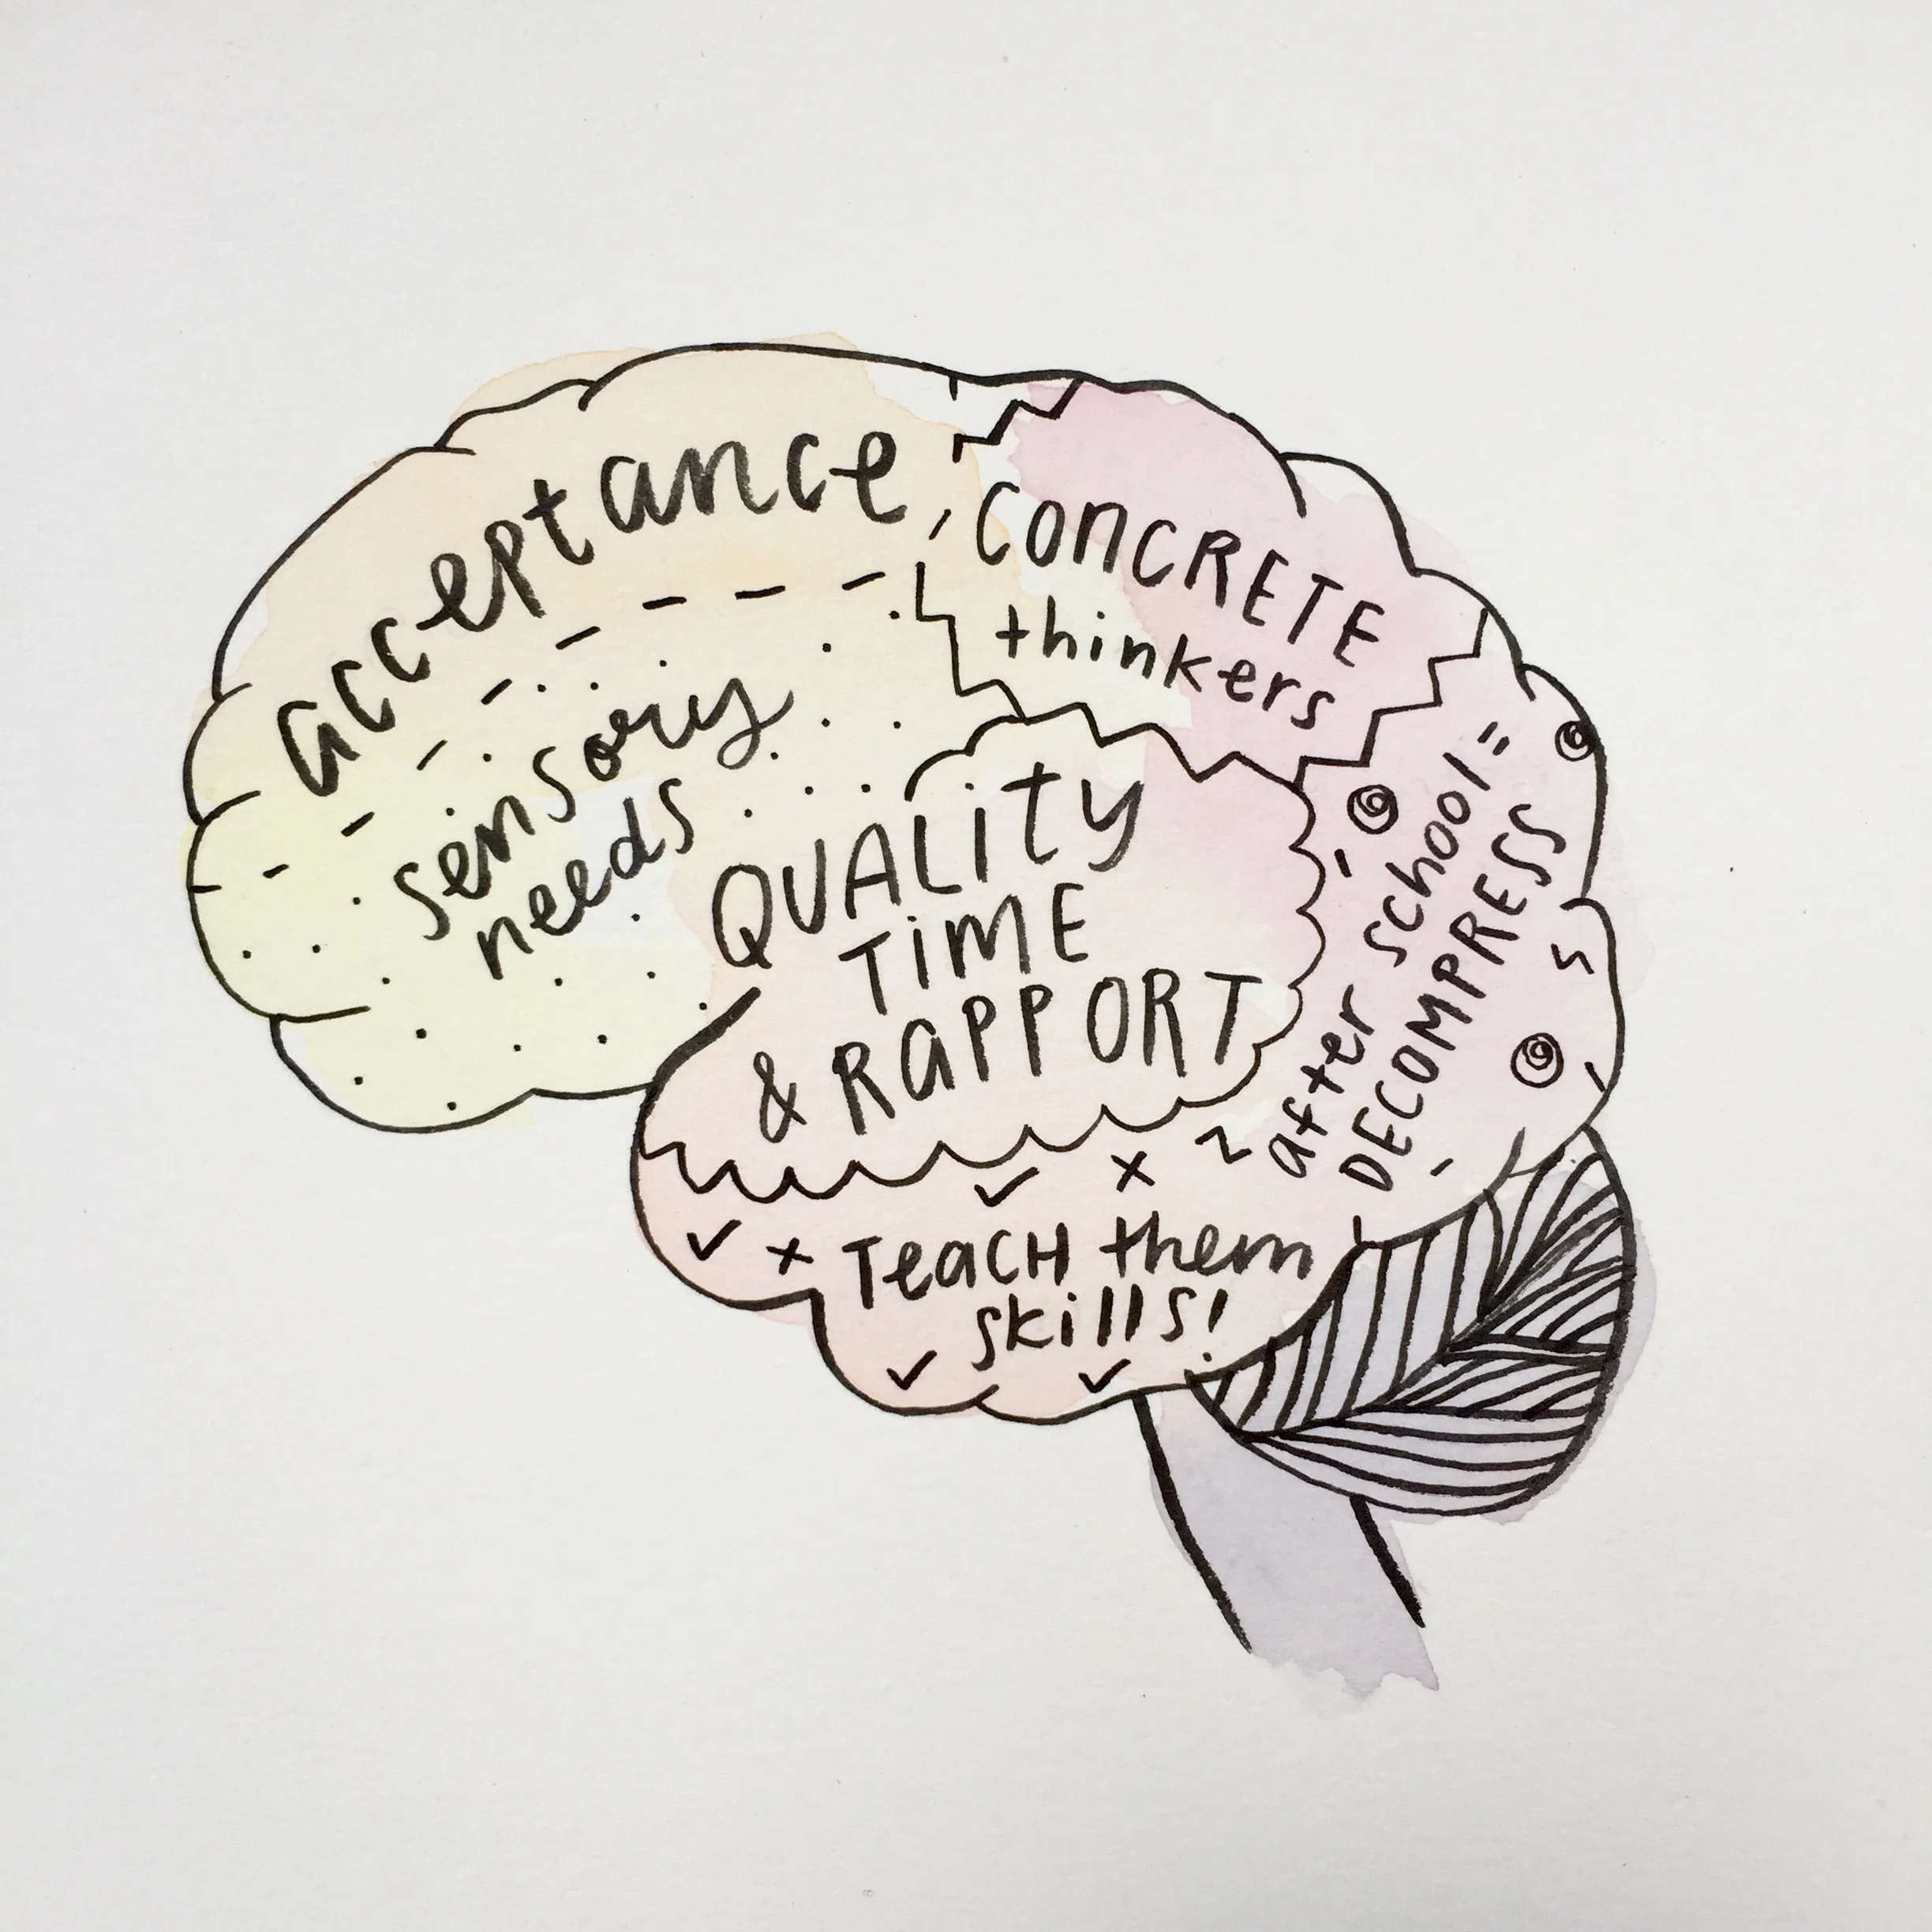 acceptance
sensory
needs
CONCRETE
thinkers
QUALITY
TIME
& RAPPORT
after school =
DECOMPRESS
TEACH them
skills!